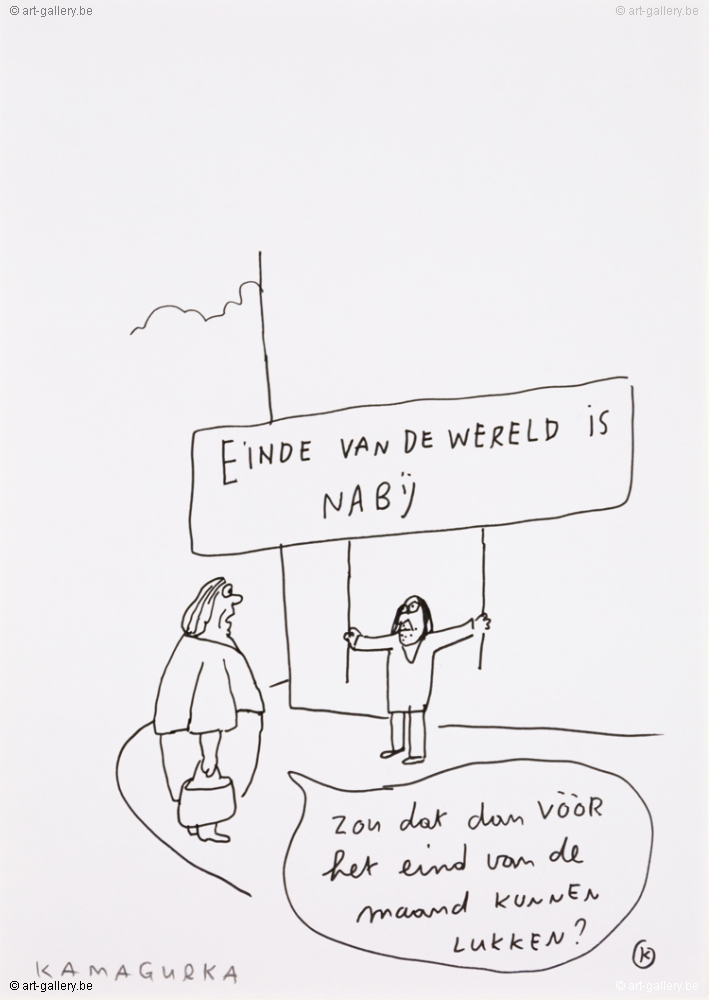 © art-gallery.be © art-gallery.be
EINDE VAN DE WERELD IS
NABIJ
zou dat dan VÖÖR
het eind van de
maand KUNNEN
LUKKEN?
K
KAMAGURKA
© art-gallery.be © art-gallery.be